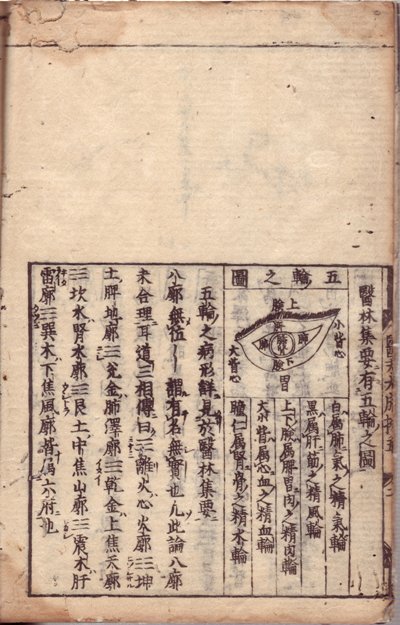 醫林集要有五輪之圖
五輪之圖
上
胞
小眥心
大眥心
下
胃
白屬肺氣之精氣輪
黒屬肝筋之精風輪
上下胞屬脾胃肉之精肉輪
大小眥屬心血之精血輪
瞳仁屬腎骨之精水輪
五輪之病形詳見於醫林集要
八廓無位謂有名無實也凢此論八廓
未合理耳道三相傳曰☲離火心火廓☷坤
土脾地廓☱兌金肺澤廓☰乾金上焦天廓
☵坎水腎水廓☶艮土中焦山廓☳震木肝
雷廓☴巽木下焦風廓皆屬六府也